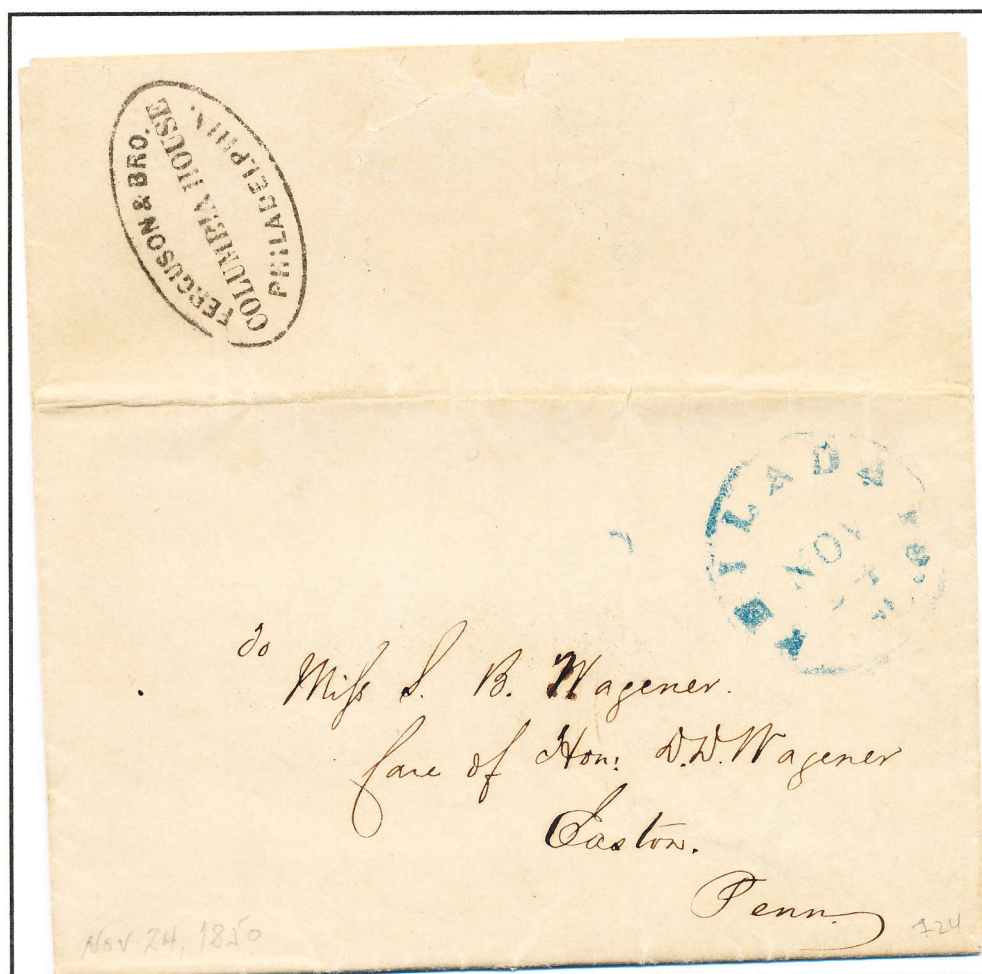 FERGUSON & BRO.
COLUMBIA HOUSE
PHILADELPHIA.
NOV
To
Miss S. B. Wagener.
Care of Hon: D.D. Wagener
Easton.
Penn.
Nov 24, 1850
724